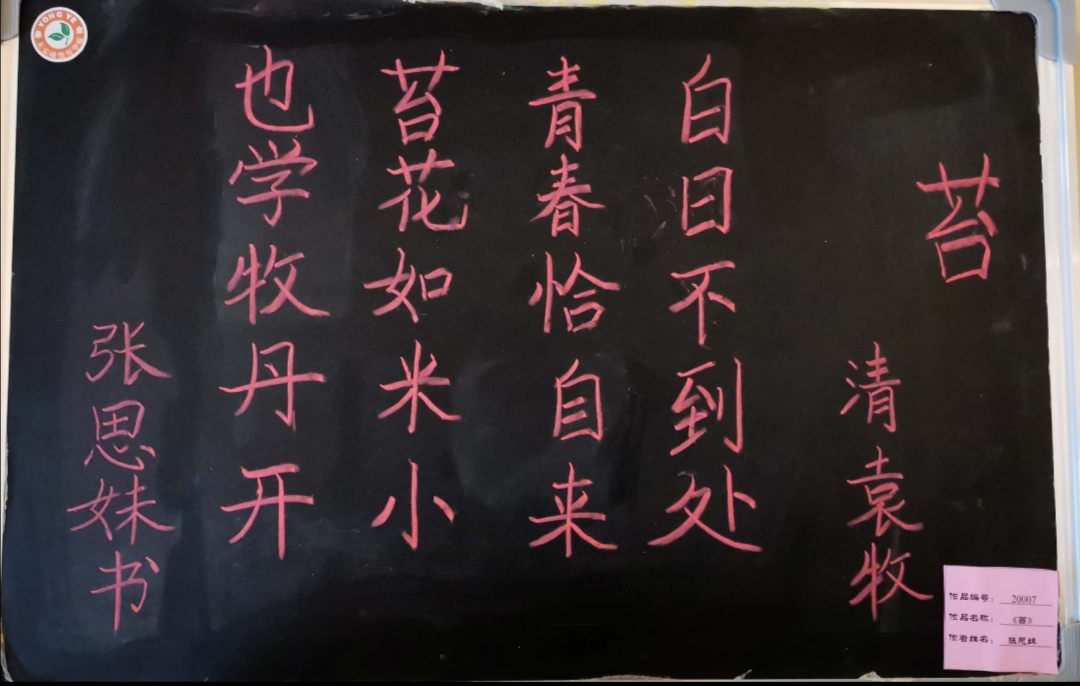 苔
清袁牧
白日不到处
青春恰自来
苔花如米小
也学牧丹开
张思妹书
YONG YE
作品编号：20007
作品名称：《苔》
作者姓名：张思妹